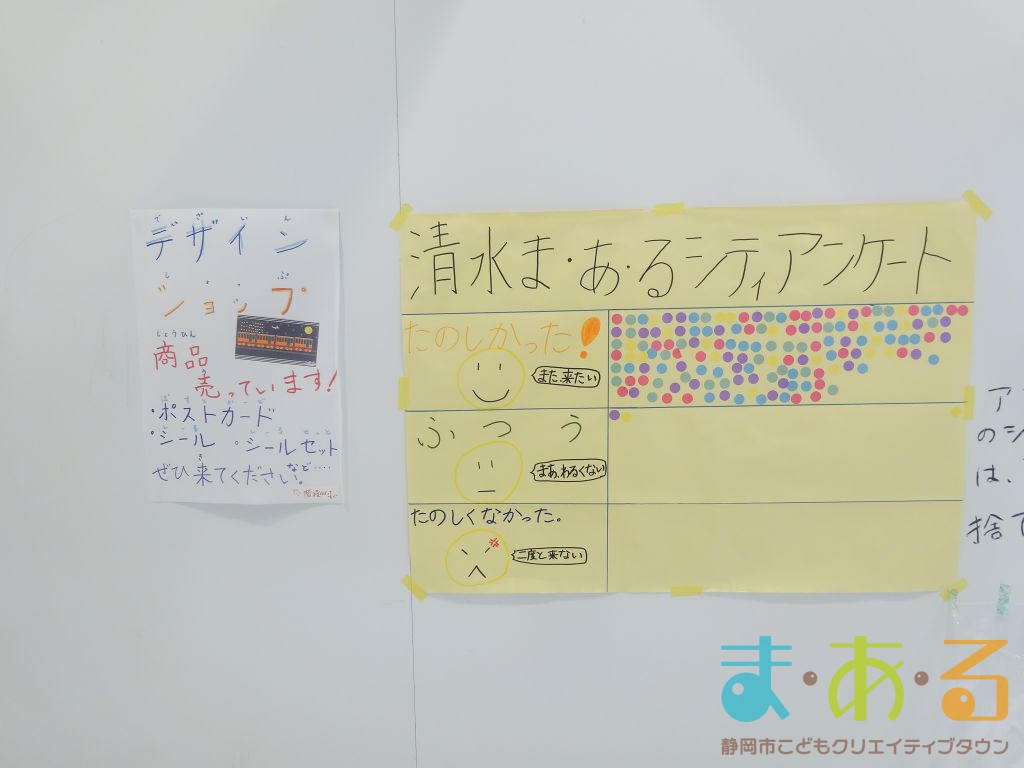 デザイン
でざいん
ショップ
しょっぷ
しょうひん
商品
売っています!
・ポストカード
・シール ・シールセット
ぜひ来てください。など‥‥
清水ま・あ・るシティアンケート
たのしかった!
また、来たい
ふつう
まあ、わるくない
たのしくなかった。
二度と来ない
ア
のシ
は、
捨て
ま・あ・る
静岡市こどもクリエイティブタウン